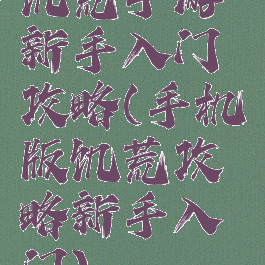 饥荒手游
新手入门
攻略(手机
版饥荒攻
略新手入
门)